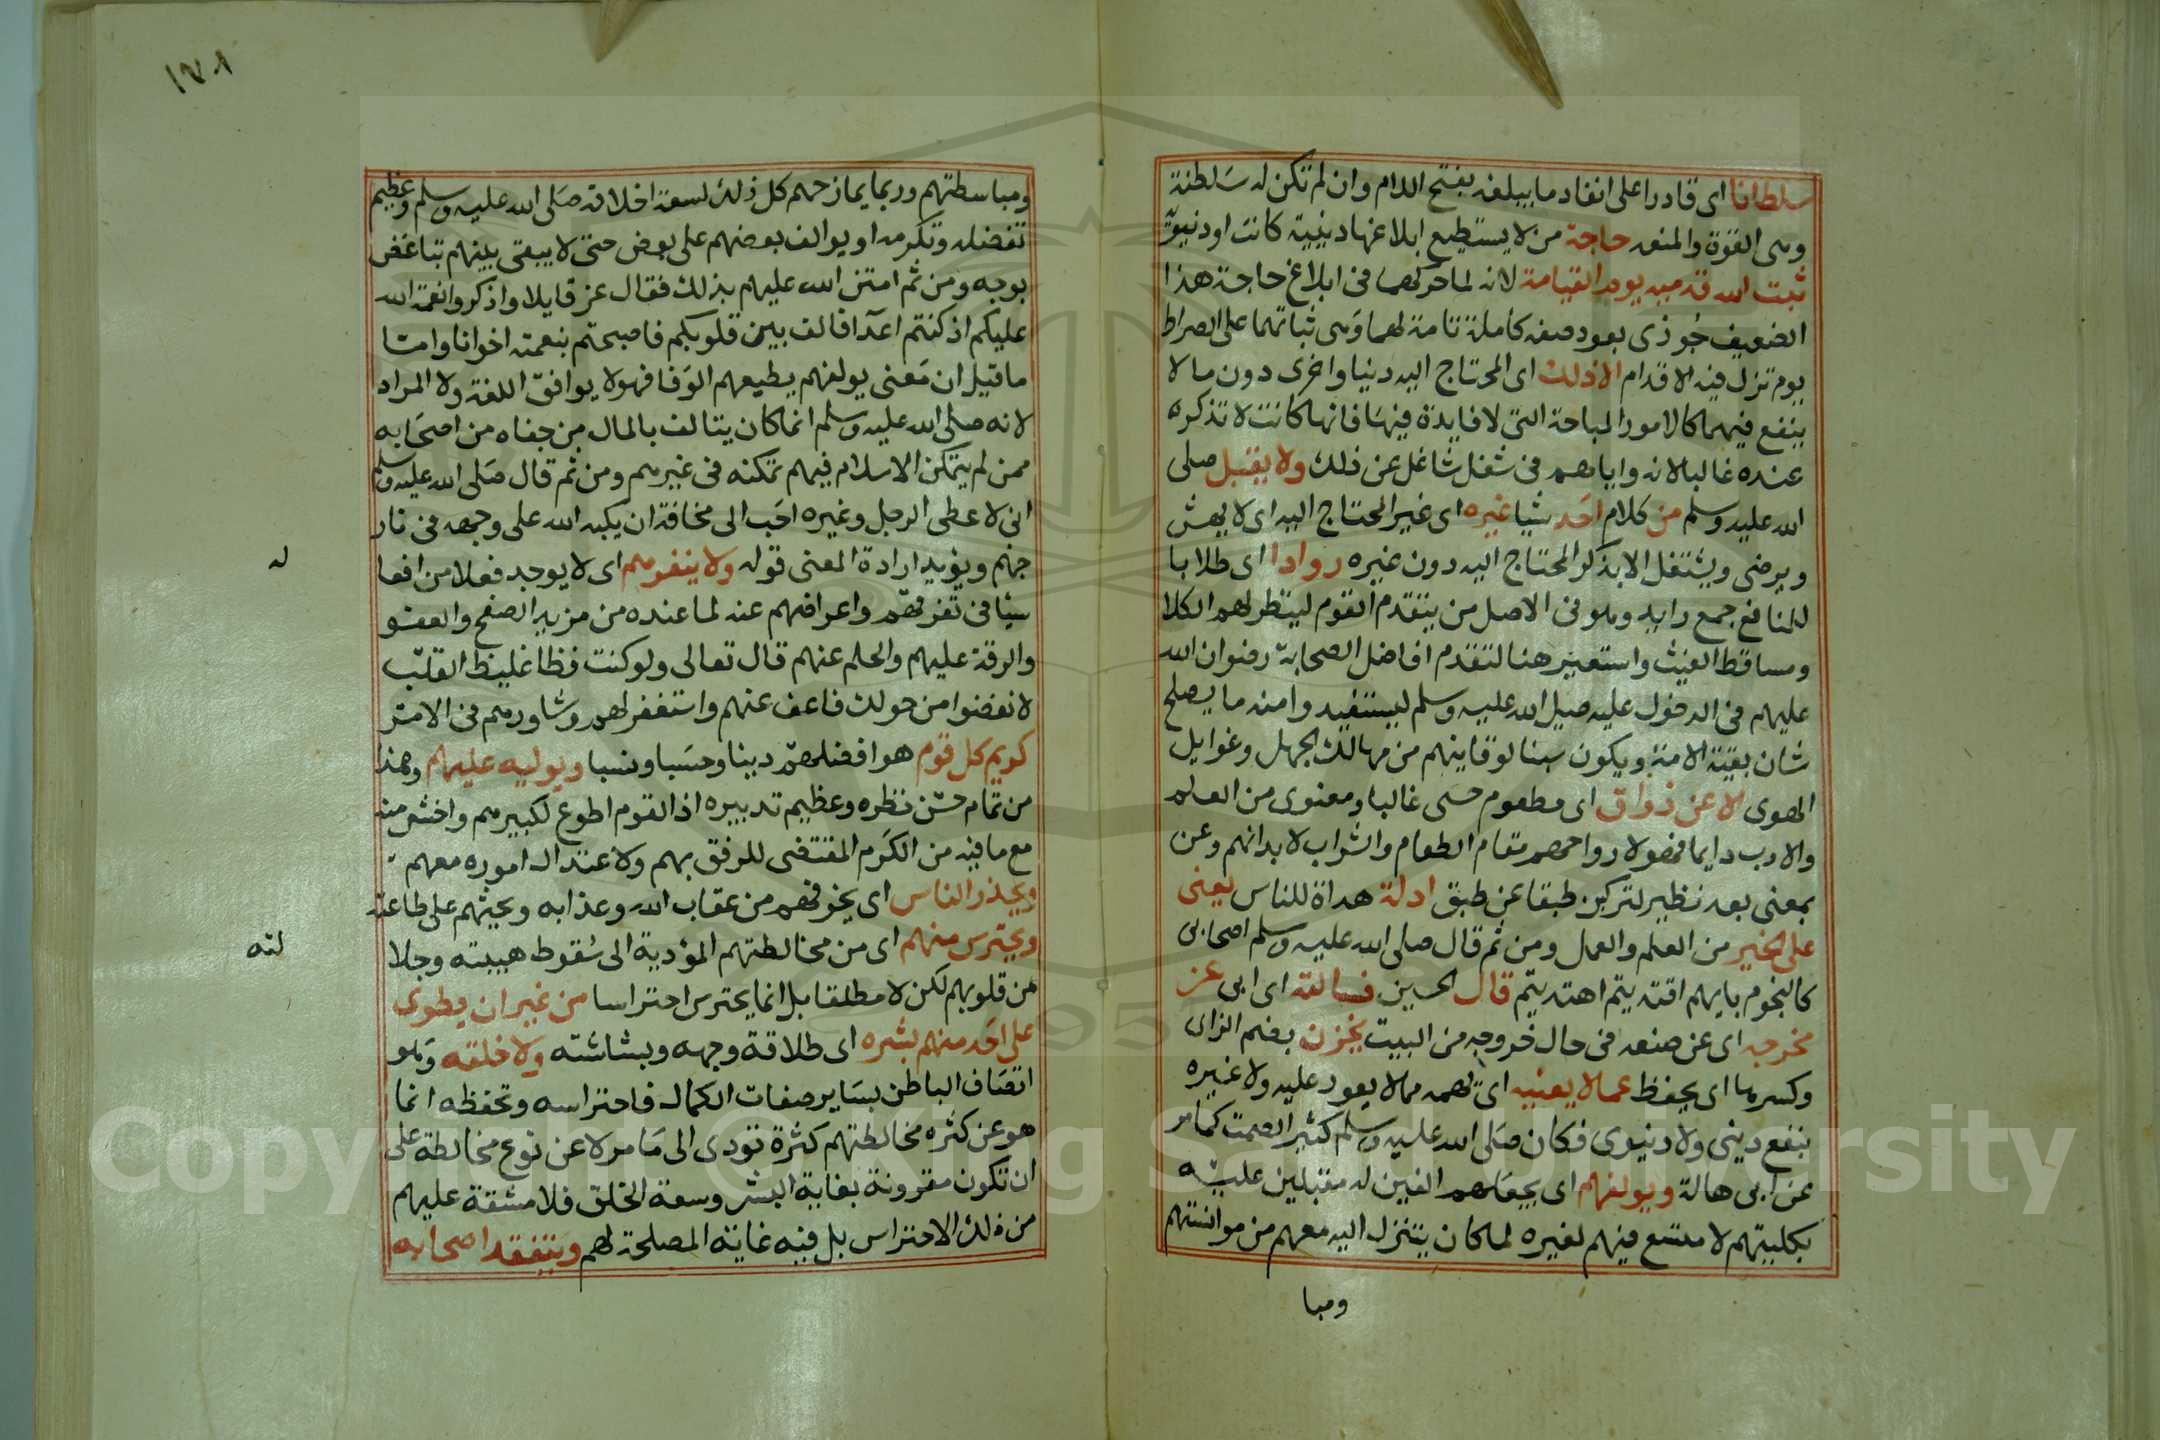 سلطانا اى قادرا على انفاد ما يبلغه بفتح اللام وان لم تكن له سلطنة
وهى القوة والمنعه حاجة من لا يستطيع ابلاغها دينية كانت او دنيوية
ثبت الله قدميه يوم القيامة لانه لما حركهما فى ابلاغ حاجة هذا
الضعيف جُوزى بعود صفه كاملة تامة لهما وهى ثباتهما على الصراط
يوم تزل فيه الاقدام الا ذلك اى المحتاج اليه دنيا واخرى دون ما لا
ينفع فيهما كالامور المباحة التى لا فايدة فيها فانها كانت لا تذكره
عنده غالبا لانه واياهم فى شغل شاغل عن ذلك ولا يقبل صلى
الله عليه وسلم من كلام احد شيا غيره اى غير المحتاج اليه اى لا يهش
ويرضى ويشتغل الا بذكر المحتاج اليه دون غيره روادا اى طلابا
للمنافع جمع رايد وهو فى الاصل من يتقدم القوم لينظر لهم الكلا
ومساقط الغيث واستعير هنا لتقدم افاضل الصحابة رضوان الله
عليهم فى الدخول عليه صلى الله عليه وسلم ليستفيدوا منه ما يصلح
شان بقية الامة ويكون سببا لوقايتهم من مهالك الجهل وغوايل
الهوى الا عن ذواق اى مطعوم حسى غالبا ومعنوى من العلم
والادب دايما فهو لارواحهم مقام الطعام والشراب لابدانهم وعن
بمعنى بعد نظير لتركبن طبقا عن طبق ادلة هداة للناس يعنى
على الخير من العلم والعمل ومن ثم قال صلى الله عليه وسلم اصحابى
كالنجوم بايهم اقتديتم اهتديتم قال الحسين فسالته اى ابى عن
مخرجه اى عن صنعه فى حال خروجه من البيت يخزن بضم الزاى
وكسرها اى يحفظ عما لا يعنيه اى لهم مما لا يعود عليه ولا غيره
بنفع دينى ولا دنيوى فكان صلى الله عليه وسلم كثير الصمت كما مر
عن ابى هالة ويولفهم اى يجعلهم الفين له مقبلين عليه
بكليتهم لا متسع فيهم لغيره لما كان يتنزل اليه معهم من موانستهم
ومبا
١٧٨
ومباسطتهم وربما يمازحهم كل ذلك لسعة اخلاقه صلى الله عليه وسلم وعظيم
تفضله وتكرمه او يوالف بعضهم على بعض حتى لا يبقى بينهم تباغض
بوجه ومن ثم امتن الله عليهم بذلك فقال عز قايلا واذكروا نعمة الله
عليكم اذ كنتم اعدآ فالف بين قلوبكم فاصبحتم بنعمته اخوانا واما
ما قيل ان معنى يولفهم يطيعهم الوفا فهو لا يوافق اللغة ولا المراد
لانه صلى الله عليه وسلم انما كان يتالف بالمال من جفاه من اصحابه
ممن لم يتمكن الاسلام فيهم تمكنه فى غيرهم ومن ثم قال صلى الله عليه وسلم
انى لاعطى الرجل وغيره احب الى مخافة ان يكبه الله على وجهه فى نار
جهنم ويؤيد ارادة المعنى قوله ولا ينفرهم اى لا يوجد فعلا من افعا
له
شيا فى تفرقهم واعرافهم عنه لما عنده من مزيد الصفح والعفو
والرقة عليهم والحلم عنهم قال تعالى ولو كنت فظا غليظ القلب
لانفضوا من حولك فاعف عنهم واستغفر لهم وشاورهم فى الامر
كريم كل قوم هو افضلهم دينا وحسبا ونسبا ويوليه عليهم وهذا
من تمام حسن نظره وعظيم تدبيره اذ القوم اطوع لكبيرهم واخشى منه
مع ما فيه من الكرم المقتضى للرفق بهم ولاعتدال اموره معهم
ويحذر الناس اى يخوفهم من عقاب الله وعذابه ويحثهم على طاعته
ويحترس منهم اى من مخالطتهم المؤدية الى سقوط هيبته وجلا
لته
من قلوبهم لكن لا مطلقا بل انما يحترس احتراسا من غير ان يطوى
على احد منهم بشره اى طلاقة وجهه وبشاشته ولا خلقه وهو
اتصاف الباطن بساير صفات الكمال فاحتراسه وتحفظه انما
هو عن كثره مخالطتهم كثرة تودى الى ما مر لا عن نوع مخالطة على
ان تكون مقرونة بغاية البشر وسعة الخلق فلا مشقة عليهم
من ذلك الاحتراس بل فيه غاية المصلحة لهم ويتفقد اصحابه
Copyright © King Saud University